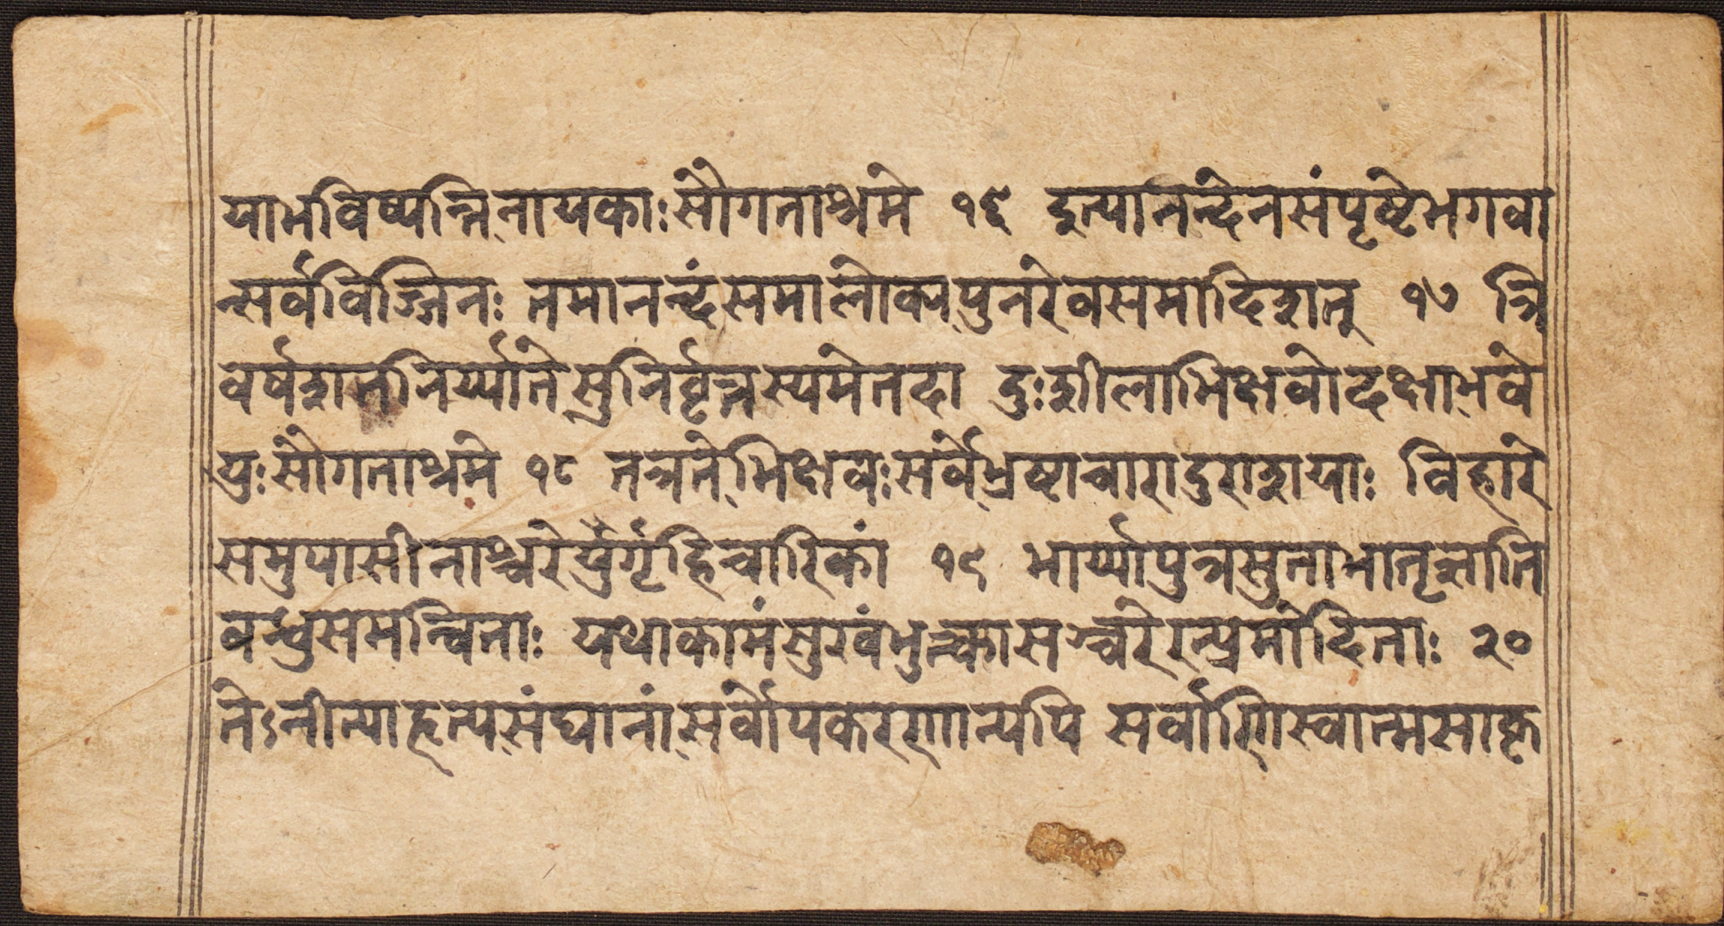 याभविष्यन्तिनायकाःसौगताश्रमे १६ इत्यानन्देनसंपृष्टेभगवा
न्सर्वविज्जिनः तमानन्दंसमालोक्यपुनरेवसमादिशत् १७ त्रि
वर्षशतनिर्य्यातेसुनिर्वृत्तस्यमेतदा दुःशीलाभिक्षवोदक्षाभवे
युःसौगताश्रमे १८ तत्रतेभिक्षवःसर्वेभ्रष्टाचारादुराशयाः विहारे
समुपासीनाश्चरेर्युर्गृहिचारिकां १९ भार्य्यापुत्रसुताभ्रातृज्ञाति
वन्धुसमन्विताः यथाकामंसुखंभुक्त्कासञ्चरेरन्प्रमोदिताः २०
तेऽनीत्याहृत्यसंघानांसर्वोपकरणान्यपि सर्वाणिस्वात्मसाकृ